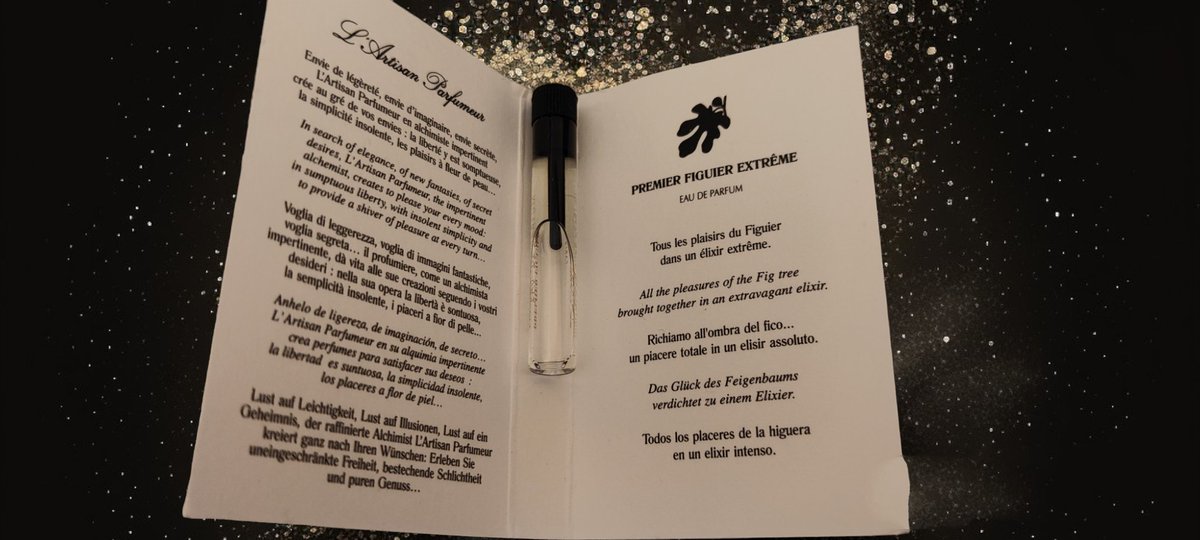 L'Artisan Parfumeur
Envie de légèreté, envie d'imaginaire, envie secrète,
L'Artisan Parfumeur en alchimiste impertinent
crée au gré de vos envies : la liberté y est somptueuse,
la simplicité insolente, les plaisirs à fleur de peau...
In search of elegance, of new fantasies, of secret
desires, L'Artisan Parfumeur, the impertinent
alchemist, creates to please your every mood:
in sumptuous liberty, with insolent simplicity and
to provide a shiver of pleasure at every turn...
Voglia di leggerezza, voglia di immagini fantastiche,
voglia segreta... il profumiere, come un alchimista
impertinente, dà vita alle sue creazioni seguendo i vostri
desideri : nella sua opera la libertà è sontuosa,
la semplicità insolente, i piaceri a fior di pelle...
Anhelo de ligereza, de imaginación, de secreto...
L'Artisan Parfumeur en su alquimia impertinente
crea perfumes para satisfacer sus deseos :
la libertad es suntuosa, la simplicidad insolente,
los placeres a flor de piel...
Lust auf Leichtigkeit, Lust auf Illusionen, Lust auf ein
Geheimnis, der raffinierte Alchimist L'Artisan Parfumeur
kreiert ganz nach Ihren Wünschen: Erleben Sie
uneingeschränkte Freiheit, bestechende Schlichtheit
und puren Genuss...
PREMIER FIGUIER EXTRÊME
EAU DE PARFUM
Tous les plaisirs du Figuier
dans un élixir extrême.
All the pleasures of the Fig tree
brought together in an extravagant elixir.
Richiamo all'ombra del fico...
un piacere totale in un elisir assoluto.
Das Glück des Feigenbaums
verdichtet zu einem Elixier.
Todos los placeres de la higuera
en un elixir intenso.